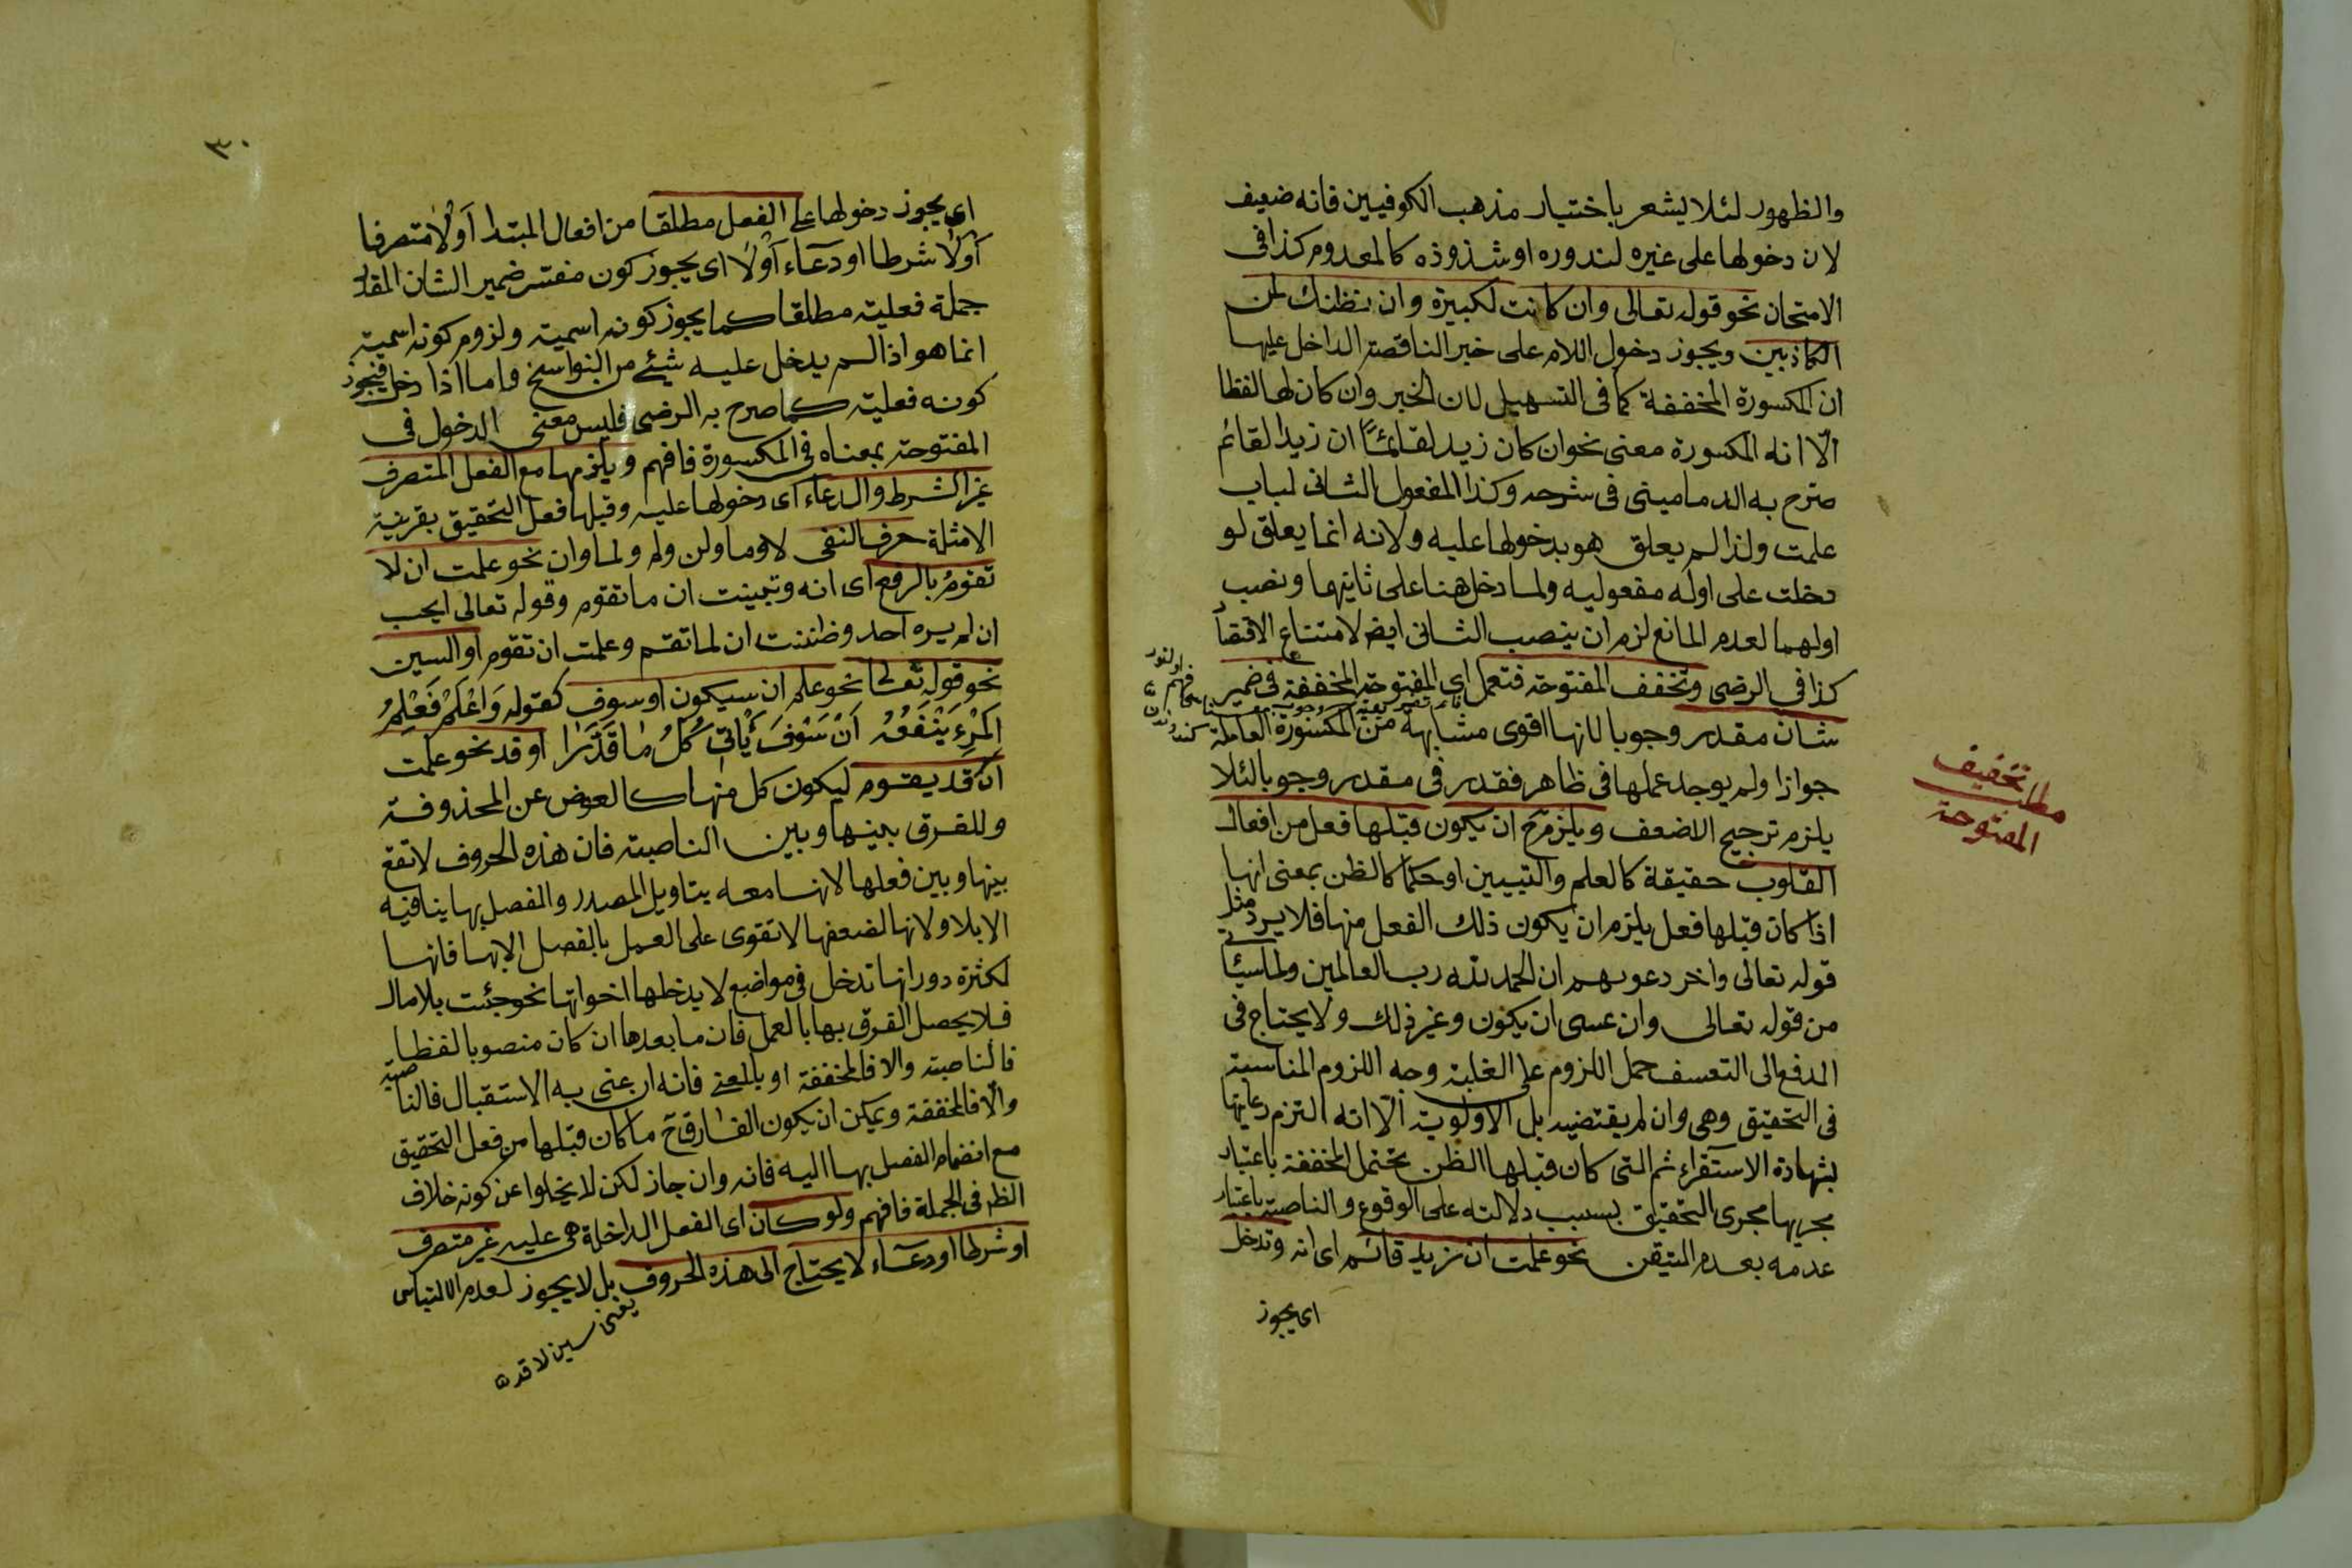 والظهور لئلا يشعر باختيار مذهب الكوفيين فانه ضعيف
لان دخولها على غيره لندوره او شذوذه كالمعدوم كذا فى
الامتحان نحو قوله تعالى وان كانت لكبيرة وان نظنك لمن
الكاذبين ويجوز دخول اللام على خبر الناقصة الداخل عليها
ان المكسورة المخففة كما فى التسهيل لان الخبر وان كان لها لفظا
الّا انه المكسورة معنى نحو ان كان زيد لقائمًا ان زيدا لقائم
صرح به الدمامينى فى شرحه وكذا المفعول الثانى لباب
علمت ولذا لم يعلق هو بدخولها عليه ولانه انما يعلق لو
دخلت على اوله مفعوليه ولما دخل هنا على ثانيها ونصب
اولهما لعدم المانع لزم ان ينصب الثانى ايض لامتناع الاقتضا
كذا فى الرضى وتخفف المفتوحة فتعمل اى المفتوحة المخففة فى ضمير
شان مقدر وجوبا لانها اقوى مشابهة من المكسورة العاملة
جوازا ولم يوجد عملها فى ظاهر فقدر فى مقدر وجوبا لئلا
يلزم ترجيح الاضعف ويلزم ح ان يكون قبلها فعل من افعال
القلوب حقيقة كالعلم والتبيين او حكما كالظن بمعنى انها
اذا كان قبلها فعل يلزم ان يكون ذلك الفعل منها فلا يرد مثل
قوله تعالى واخر دعويهم ان الحمد لله رب العالمين ولما سيأتى
من قوله تعالى وان عسى ان يكون وغير ذلك ولا يحتاج فى
المدفع الى التعسف حمل اللزوم على الغلبة وجه اللزوم المناسبة
فى التحقيق وهى وان لم يقتضيه بل الاولوية الّا انه التزم رعايتها
بشهادة الاستقراء ثم التى كان قبلها الظن تحتمل المخففة باعتبار
مجريها مجرى التحقيق بسبب دلالته على الوقوع والناصبة باعتبار
عدمه بعدم المتيقن نحو علمت ان زيد قائم اى انه وتدخل
اى يجوز
مطلب تخفيف
المفتوحة
٣٠
اى يجوز دخولها على الفعل مطلقا من افعال المبتدا أولا متصرفا
أولا شرطا او دعاء أولا اى يجوز كون مفسر ضمير الشان المقدر
جملة فعلية مطلقا كما يجوز كونه اسمية ولزوم كونه اسمية
انما هو اذا لم يدخل عليه شئ من النواسخ واما اذا دخل فيجوز
كونه فعلية كما صرح به الرضى فليس معنى الدخول فى
المفتوحة بمعناه فى المكسورة فافهم ويلزمها مع الفعل المتصرف
غير الشرط والدعاء اى دخولها عليه وقبلها فعل التحقيق بقرينة
الامثلة حرف النفى لا وما ولن ولم ولما وان نحو علمت ان لا
تقومُ بالرفع اى انه وتبينت ان ما تقوم وقوله تعالى ايحب
ان لم يره احد وظننت ان لما تقم وعلمت ان تقوم او السين
نحو قوله تعالى نحو علم ان سيكون او سوف كقوله وَاعْلَمْ فَعِلْمُ
المَرْءِ يَنْفَعُهُ اَنْ سَوْفَ يَأتِى كُلُّ مٰا قَدَّرَا او قد نحو علمت
ان قد يقوم ليكون كل منها كالعوض عن المحذوفة
وللفرق بينها وبين الناصبة فان هذه الحروف لا تقع
بينها وبين فعلها لانها معه بتاويل المصدر والفصل بها ينافيه
الابلا ولانها لضعفها لا تقوى على العمل بالفصل الابها فانها
لكثرة دورانها تدخل فى مواضع لا يدخلها اخواتها نحو جئت بلا مال
فلا يحصل الفرق بها بالعمل فان ما بعدها ان كان منصوبا لفظا
فالناصبة والا فالمخففة او بالمعنى فانه ان عنى به الاستقبال فالناصبة
والّا فالمخففة ويمكن ان يكون الفارق ح ما كان قبلها من فعل التحقيق
مع انضمام الفصل بها اليه فانه وان جاز لكن لا يخلوا عن كونه خلاف
الظ فى الجملة فافهم ولو كان اى الفعل الداخلة هى عليه غير متصرف
او شرطا او دعاء لا يحتاج الى هذه الحروف بل لا يجوز لعدم الالتباس
يعنى سين لا قد